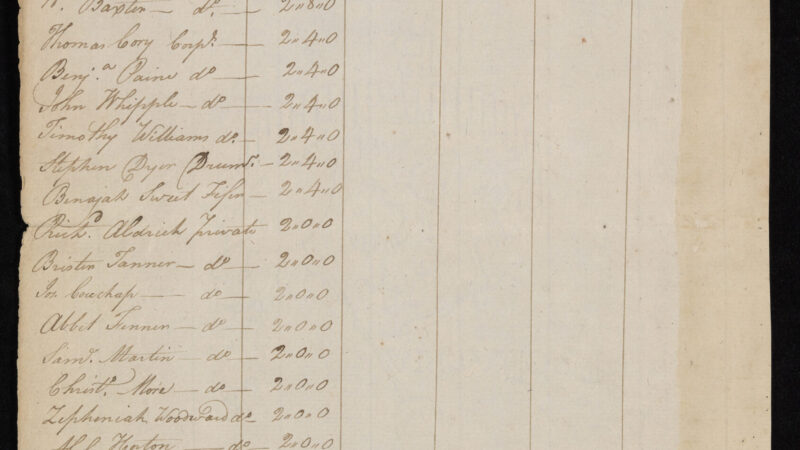 Baxter — do. 2"8"0
Thomas Cory Corpl. — 2"4"0
Benja. Paine do — 2"4"0
John Whipple — do — 2"4"0
Timothy Williams do. — 2"4"0
Stephen Dyer Drumr. — 2"4"0
Benajah Sweet Fifer — 2"4"0
Richd. Aldrich Private 2"0"0
Brister Tanner — do — 2"0"0
Jos. — do — 2"0"0
Abbit Fenner — do — 2"0"0
Saml. Martin — do — 2"0"0
Christr. More — do — 2"0"0
Zepheniah Woodward do — 2"0"0
Horton — do — 2"0"0